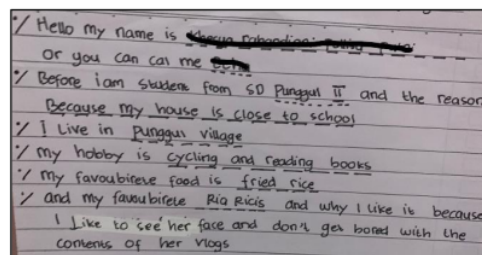 ·/ Hello my name is
or you can cal me
·/ Before iam student from SD Punggul II and the reason
Because my house is close to school
·/ I Live in punggul village
·/ my hobby is cycling and reading books
·/ my favoubirete food is fried rice
·/ and my favoubirete Ria Ricis and why I like is because
I Like to see her face and don't get bored with the
contents of her vlogs